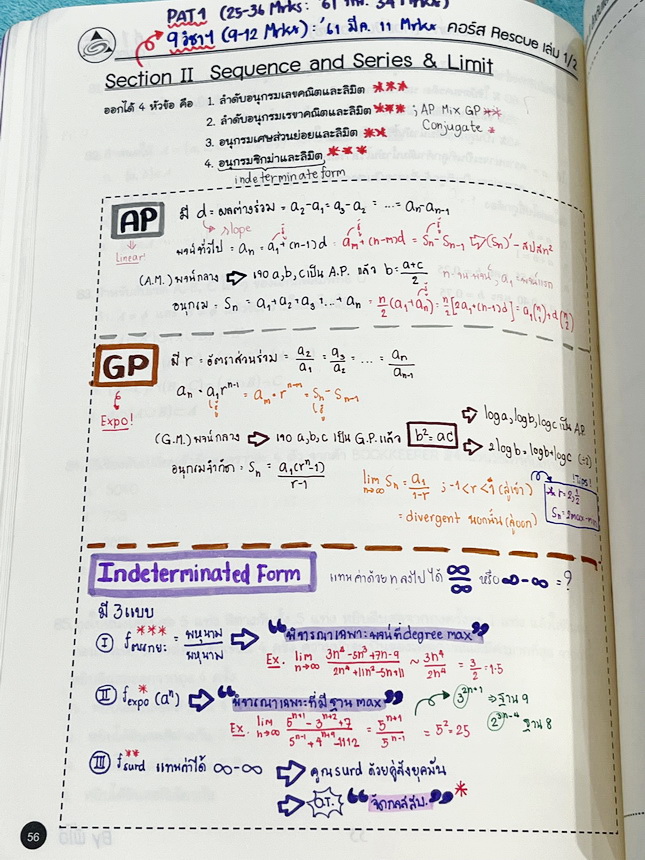 PAT1 (25-36 Mrks : '61 กพ. 34 Mrks)
9 วิชาฯ (9-12 Mrks) : '61 มีค. 11 Mrks
คอร์ส Rescue เล่ม 1/2
Section II Sequence and Series & Limit
ออกได้ 4 หัวข้อ คือ 1. ลำดับอนุกรมเลขคณิตและลิมิต ***
2. ลำดับอนุกรมเรขาคณิตและลิมิต *** ; AP Mix GP **
3. อนุกรมเศษส่วนย่อยและลิมิต ** Conjugate *
4. อนุกรมซิกม่าและลิมิต ***
indeterminate form
AP มี d = ผลต่างร่วม = a₂-a₁ = a₃-a₂ = ... = aₙ-aₙ₋₁
slope
Linear!
พจน์ทั่วไป = aₙ = a₁+(n-1)d = aₘ+(n-m)d = Sₙ-Sₙ₋₁
(A.M.) พจน์กลาง ⇨ ถ้า a,b,c เป็น A.P. แล้ว b = (a+c)/2
อนุกรม = Sₙ = a₁+a₂+a₃+...+aₙ = n/2(a₁+aₙ) = n/2[2a₁+(n-1)d] = a₁(n/1)+d(n/2)
GP มี r = อัตราส่วนร่วม = a₂/a₁ = a₃/a₂ = ... = aₙ/aₙ₋₁
Expo!
aₙ = a₁rⁿ⁻¹ = aₘ·rⁿ⁻ᵐ = Sₙ-Sₙ₋₁
(G.M.) พจน์กลาง ⇨ ถ้า a,b,c เป็น G.P. แล้ว b² = ac
⇨ log a, log b, log c เป็น A.P.
⇨ 2log b = log a + log c (÷2)
อนุกรมจำกัด = Sₙ = a₁(rⁿ-1)/(r-1)
lim n→∞ Sₙ = a₁/(1-r) ; -1<r<1 (ลู่เข้า)
= divergent นอกนั้น (ลู่ออก)
!Tips!
* r = 2, 1/2
Sₙ = 2max-min
Indeterminated Form แทนค่าด้วย n ลงไปได้ ∞/∞ หรือ ∞-∞ = ?
มี 3 แบบ
Ⅰ f ตรรกยะ *** = พหุนาม/พหุนาม ⇨ “พิจารณาเฉพาะพจน์ที่ degree max”
Ex. lim n→∞ (3n⁴-5n³+7n-9)/(2n⁴+11n²-5n+11) ~ 3n⁴/2n⁴ = 3/2 = 1.5
Ⅱ f expo * (aⁿ) ⇨ “พิจารณาเฉพาะที่มีฐาน max”
3²ⁿ⁺¹ ⇒ ฐาน 9
2³ⁿ⁻⁴ ฐาน 8
Ex. lim n→∞ (5ⁿ⁺¹-3ⁿ⁺²+7)/(5ⁿ⁻¹+4ⁿ⁺⁹-1112) = 5ⁿ⁺¹/5ⁿ⁻¹ = 5² = 25
Ⅲ f surd ** แทนค่าได้ ∞-∞ ⇨ คูณ surd ด้วยคู่สังยุคมัน
⇨ O.T. “จัดกสส.” *
56